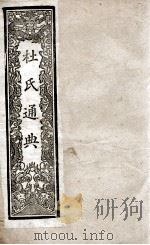 杜氏通典
研狗
mtoou.info